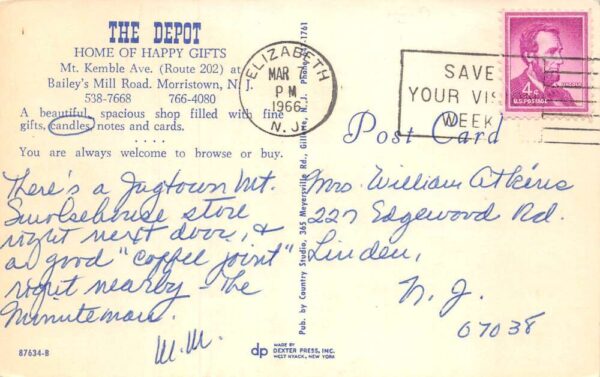 THE DEPOT
HOME OF HAPPY GIFTS
Mt. Kemble Ave. (Route 202) at
Bailey's Mill Road. Morristown, N. J.
538-7668 766-4080
A beautiful, spacious shop filled with fine
gifts, candles, notes and cards.
. . . .
You are always welcome to browse or buy.
There's a Jugtown Mt.
Smokehouse store
right next door, &
a good "coffee joint"
right nearby - The
Minuteman.
M.M.
87634-B
Pub. by Country Studio, 365 Meyersville Rd., Gillette, N. J. Phone
-1761
ELIZABETH
MAR
PM
1966
N. J.
SAVE
YOUR VIS
WEEK
4¢
U.S. POSTAGE
Post Card
Mrs. William Atkins
227 Edgewood Rd.
Linden,
N. J.
07038
dp
MADE BY
DEXTER PRESS, INC.
WEST NYACK, NEW YORK